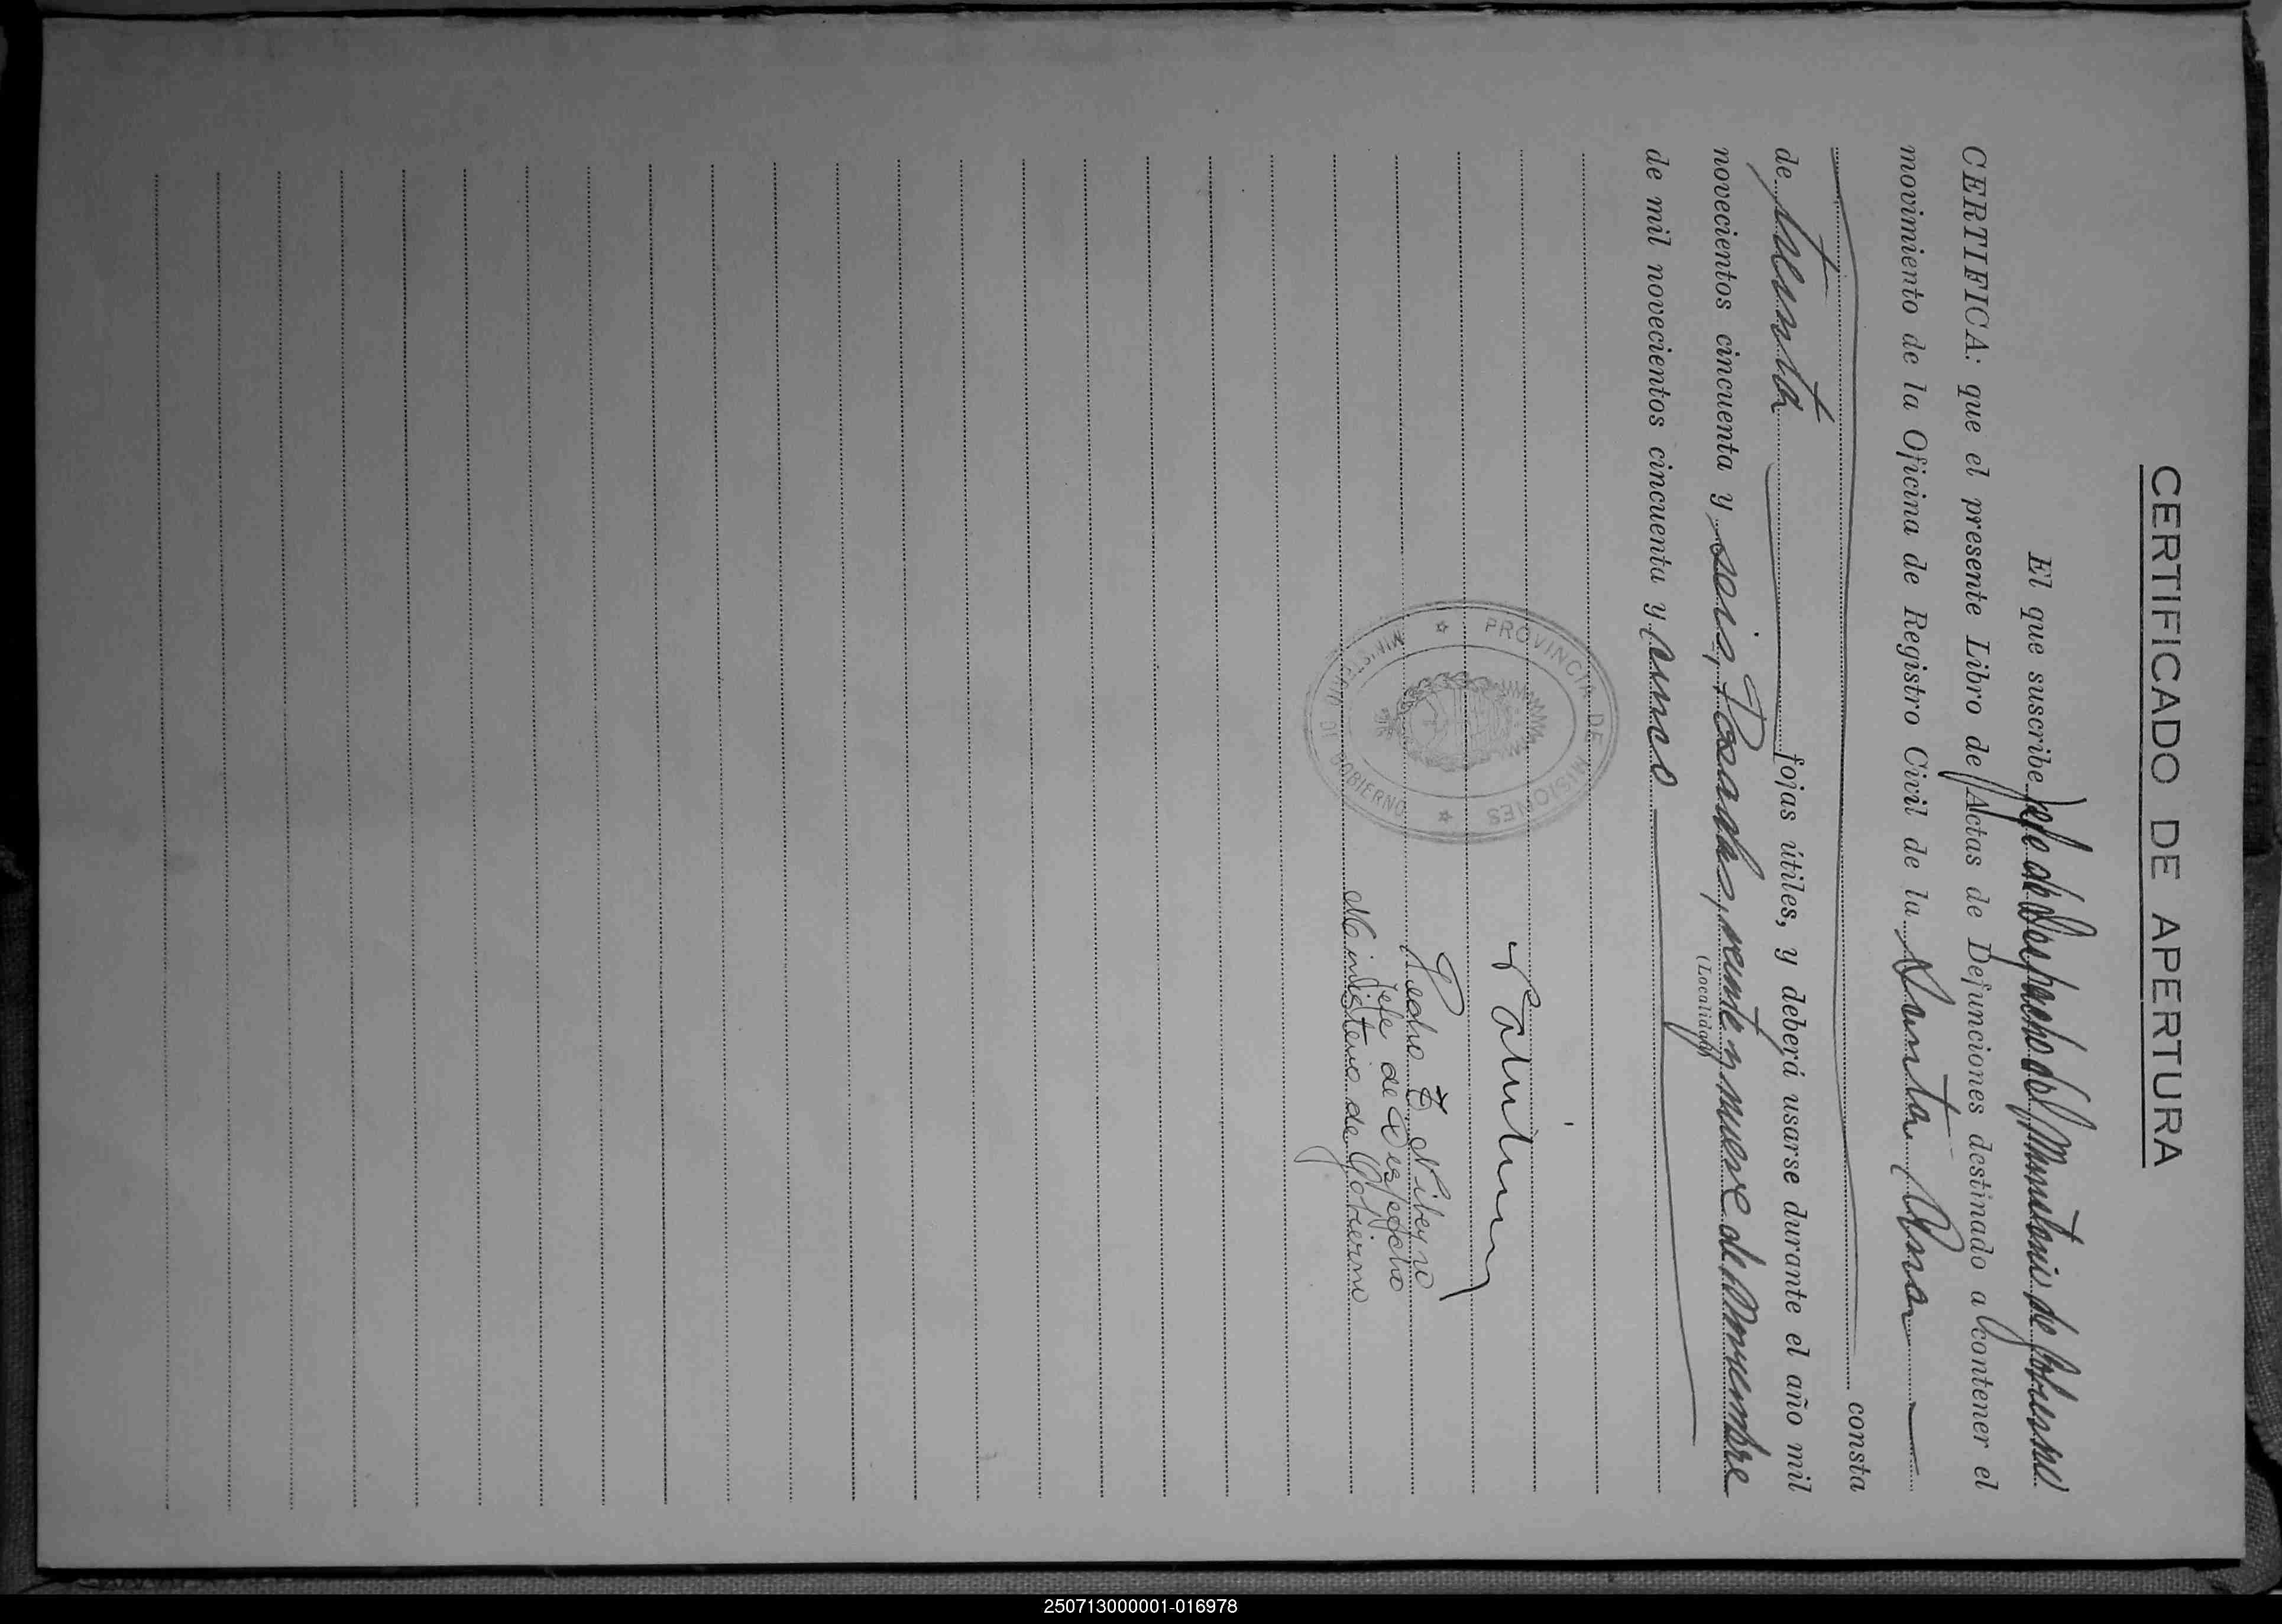 CERTIFICADO DE APERTURA
El que suscribe Jefe de Despacho del Ministerio de Gobierno
CERTIFICA: que el presente Libro de Actas de Defunciones destinado a contener el
movimiento de la Oficina de Registro Civil de la Santa Ana
consta
de treinta fojas útiles, y deberá usarse durante el año mil
novecientos cincuenta y seis, Posadas, veinte y nueve de Noviembre
(Localidad)
de mil novecientos cincuenta y cinco
PROVINCIA DE MISIONES
MINISTERIO DE GOBIERNO
Pedro
Jefe de Despacho
Ministerio de Gobierno
250713000001-016978